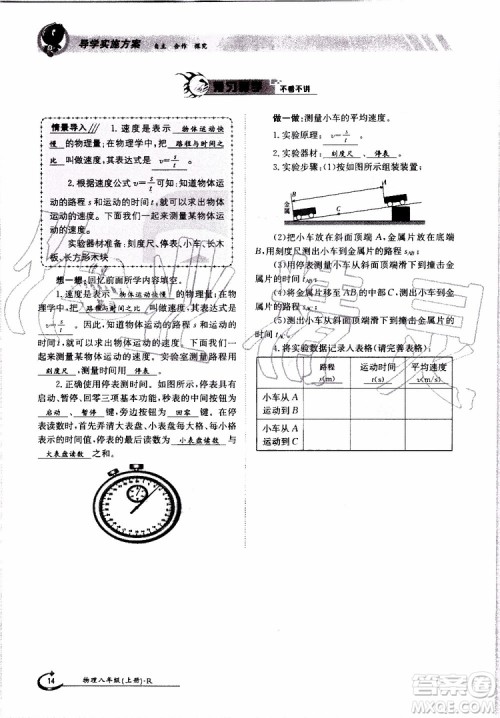 导学实施方案 自主 合作 探究
不看不讲
情景导入 1. 速度是表示 物体运动快
慢 的物理量；在物理学中，
把 路程与时间之比
叫做速度，其表达式是 v=s/t。
2. 根据速度公式 v=s/t 可知：知道物体运
动的路程 s 和时间 t，就可以求出物体
运动的速度。下面，我们一起来测量某物体
运动的速度。
实验器材准备：刻度尺、停表、小车、长木
板、长方形木块
想一想：回忆前面所学内容填空。
1. 速度是表示 物体运动快慢 的物理量，把
路程与时间之比 叫做速度，其表达式是
v=s/t。因此，知道物体运动的路程和时间，我们一
起来测量某物体运动的速度。实验测量路程用
刻度尺 、测量时间用 停表 。
2. 如下图所示，在使用停表测时间时，它的
启动、暂停、回零三项基本功能是：上方按钮为
启动 、 暂停 ，侧边按钮为 回零 ；小圈
表示的时间单位为大格，停表的读数为 小表盘读数
+ 大表盘读数 。
做一做：测量小车的平均速度。
1. 实验原理： v=s/t 。
2. 实验器材： 刻度尺 、 停表 。
3. 实验步骤：(1)按如图所示组装装置；
A
B
C
金属片
(2)把小车放在斜面顶端 A，金属片放在底端
B，用刻度尺测出小车将要通过的路程
(3)用停表测量小车从斜面顶端滑下到撞击金
属片的时间
(4)将金属片移至 AB 的中点 C，测出小车从
A 到 C 的路程
(5)测出小车从斜面顶端滑下到撞击金属片的时
间
4. 将实验数据记录入表格(请完善表格)：
路程 s(m) 运动时间 t(s) 平均速度 v(m/s)
小车从 A 运动到 B
小车从 A 运动到 C
14 物理八年级(上册)·R